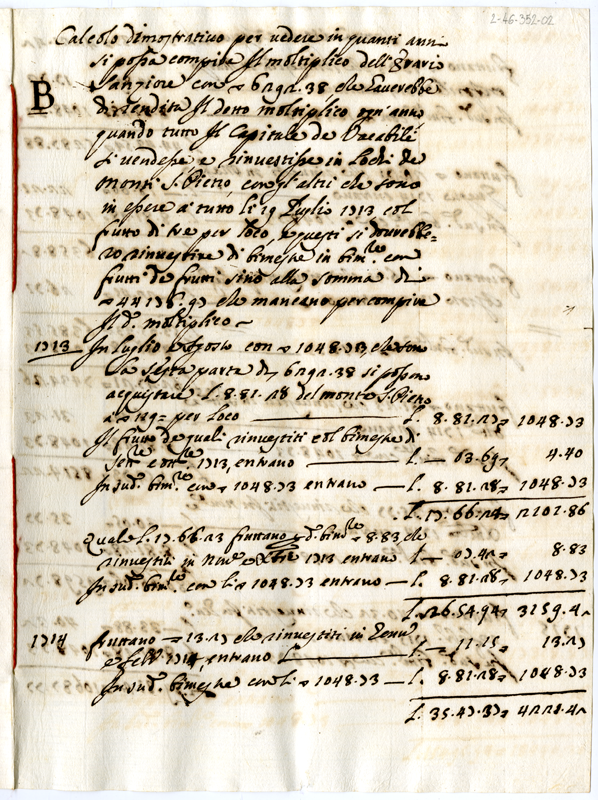 2-46-352-02
Calcolo dimostrativo per vedere in quanti anni
si possa compire il moltiplico dell'
B
Sangiore con che haverebbe
di rendita il detto moltiplico ogn'anno
quando tutto il Capitale de Vacabili
si vendesse e rinvestisse in Lochi de
Monti S. Pietro con gl'altri che sono
in essere a tutto li 19 Luglio 1713 col
frutto di tre per loco, e questi si dovrebbe=
ro rinvestire di bimestre in bim.re con
frutti de frutti sino alla somma di
che mancano per compire
il d.o moltiplico
1713 In Luglio e Agosto con 1048.33, che sono
la sesta parte di si possono
acquistare L. 8.81.28 del monte S. Pietro
a 119 per Loco L. 8.81.27 1048.33
Il frutto de quali rinvestiti col bimestre di
Sett.re e ott.re 1713, entrano L. — 03.69 4.40
In sud.o bim.re con 1048.33 entrano L. 8.81.28 1048.33
L. 17.66.24 2101.86
Quale L. 17.66.23 fruttano d.o bim.re 8.83 che
rinvestiti in Nov.e e Xbre 1713 entrano L — 07.42 8.83
In sud.o bim.re con li 1048.33 entrano L. 8.81.28 1048.33
L. 26.54.94 3159.42
1714 fruttano 13.27 che rinvestiti in Genn.o
e feb.o 1714 entrano L — 11.15 13.27
In sud.o bimestre con li 1048.33 L. 8.81.28 1048.33
L. 35.47.37 4221.42